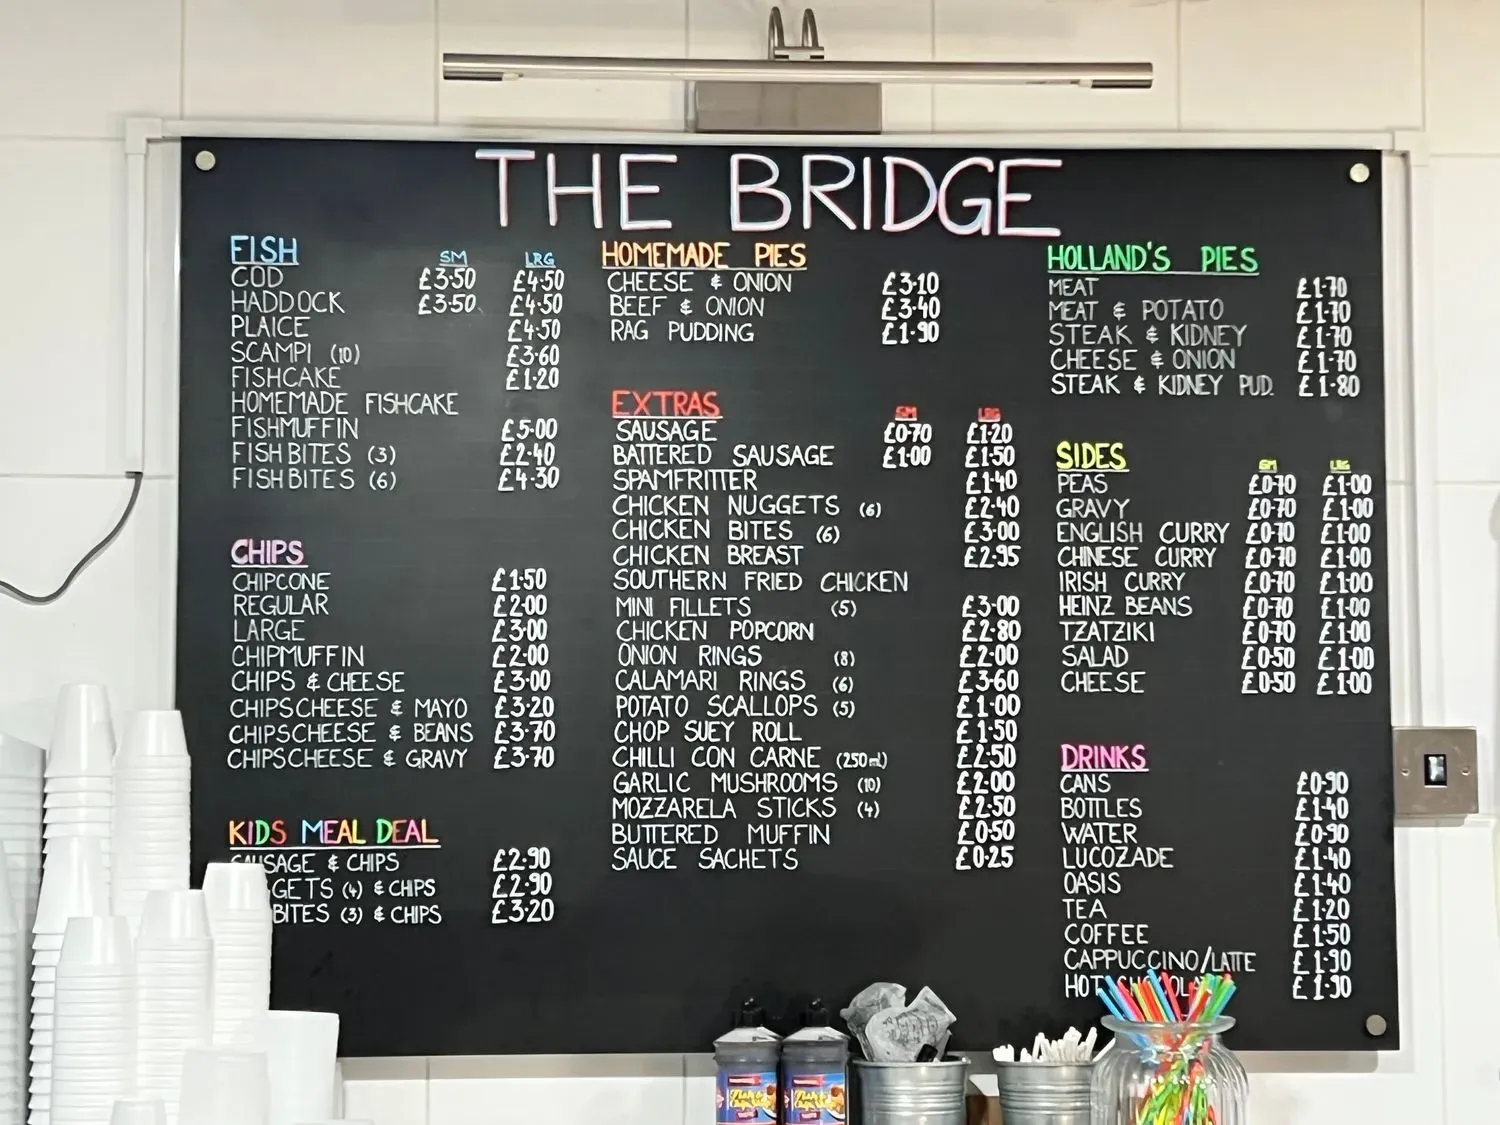 THE BRIDGE
FISH SM LRG
COD £3·50 £4·50
HADDOCK £3·50 £4·50
PLAICE £4·50
SCAMPI (10) £3·60
FISHCAKE £1·20
HOMEMADE FISHCAKE
FISHMUFFIN £5·00
FISHBITES (3) £2·40
FISHBITES (6) £4·30
CHIPS
CHIPCONE £1·50
REGULAR £2·00
LARGE £3·00
CHIPMUFFIN £2·00
CHIPS & CHEESE £3·00
CHIPSCHEESE & MAYO £3·20
CHIPSCHEESE & BEANS £3·70
CHIPSCHEESE & GRAVY £3·70
KIDS MEAL DEAL
SAUSAGE & CHIPS £2·90
GGETS (4) & CHIPS £2·90
BITES (3) & CHIPS £3·20
HOMEMADE PIES
CHEESE & ONION £3·10
BEEF & ONION £3·40
RAG PUDDING £1·90
EXTRAS SM LRG
SAUSAGE £0·70 £1·20
BATTERED SAUSAGE £1·00 £1·50
SPAMFRITTER £1·40
CHICKEN NUGGETS (6) £2·40
CHICKEN BITES (6) £3·00
CHICKEN BREAST £2·95
SOUTHERN FRIED CHICKEN
MINI FILLETS (5) £3·00
CHICKEN POPCORN £2·80
ONION RINGS (8) £2·00
CALAMARI RINGS (6) £3·60
POTATO SCALLOPS (5) £1·00
CHOP SUEY ROLL £1·50
CHILLI CON CARNE (250ml) £2·50
GARLIC MUSHROOMS (10) £2·00
MOZZARELA STICKS (4) £2·50
BUTTERED MUFFIN £0·50
SAUCE SACHETS £0·25
HOLLAND'S PIES
MEAT £1·70
MEAT & POTATO £1·70
STEAK & KIDNEY £1·70
CHEESE & ONION £1·70
STEAK & KIDNEY PUD. £1·80
SIDES SM LRG
PEAS £0·70 £1·00
GRAVY £0·70 £1·00
ENGLISH CURRY £0·70 £1·00
CHINESE CURRY £0·70 £1·00
IRISH CURRY £0·70 £1·00
HEINZ BEANS £0·70 £1·00
TZATZIKI £0·70 £1·00
SALAD £0·50 £1·00
CHEESE £0·50 £1·00
DRINKS
CANS £0·90
BOTTLES £1·40
WATER £0·90
LUCOZADE £1·40
OASIS £1·40
TEA £1·20
COFFEE £1·50
CAPPUCCINO/LATTE £1·90
HOT CHOCOLATE £1·90